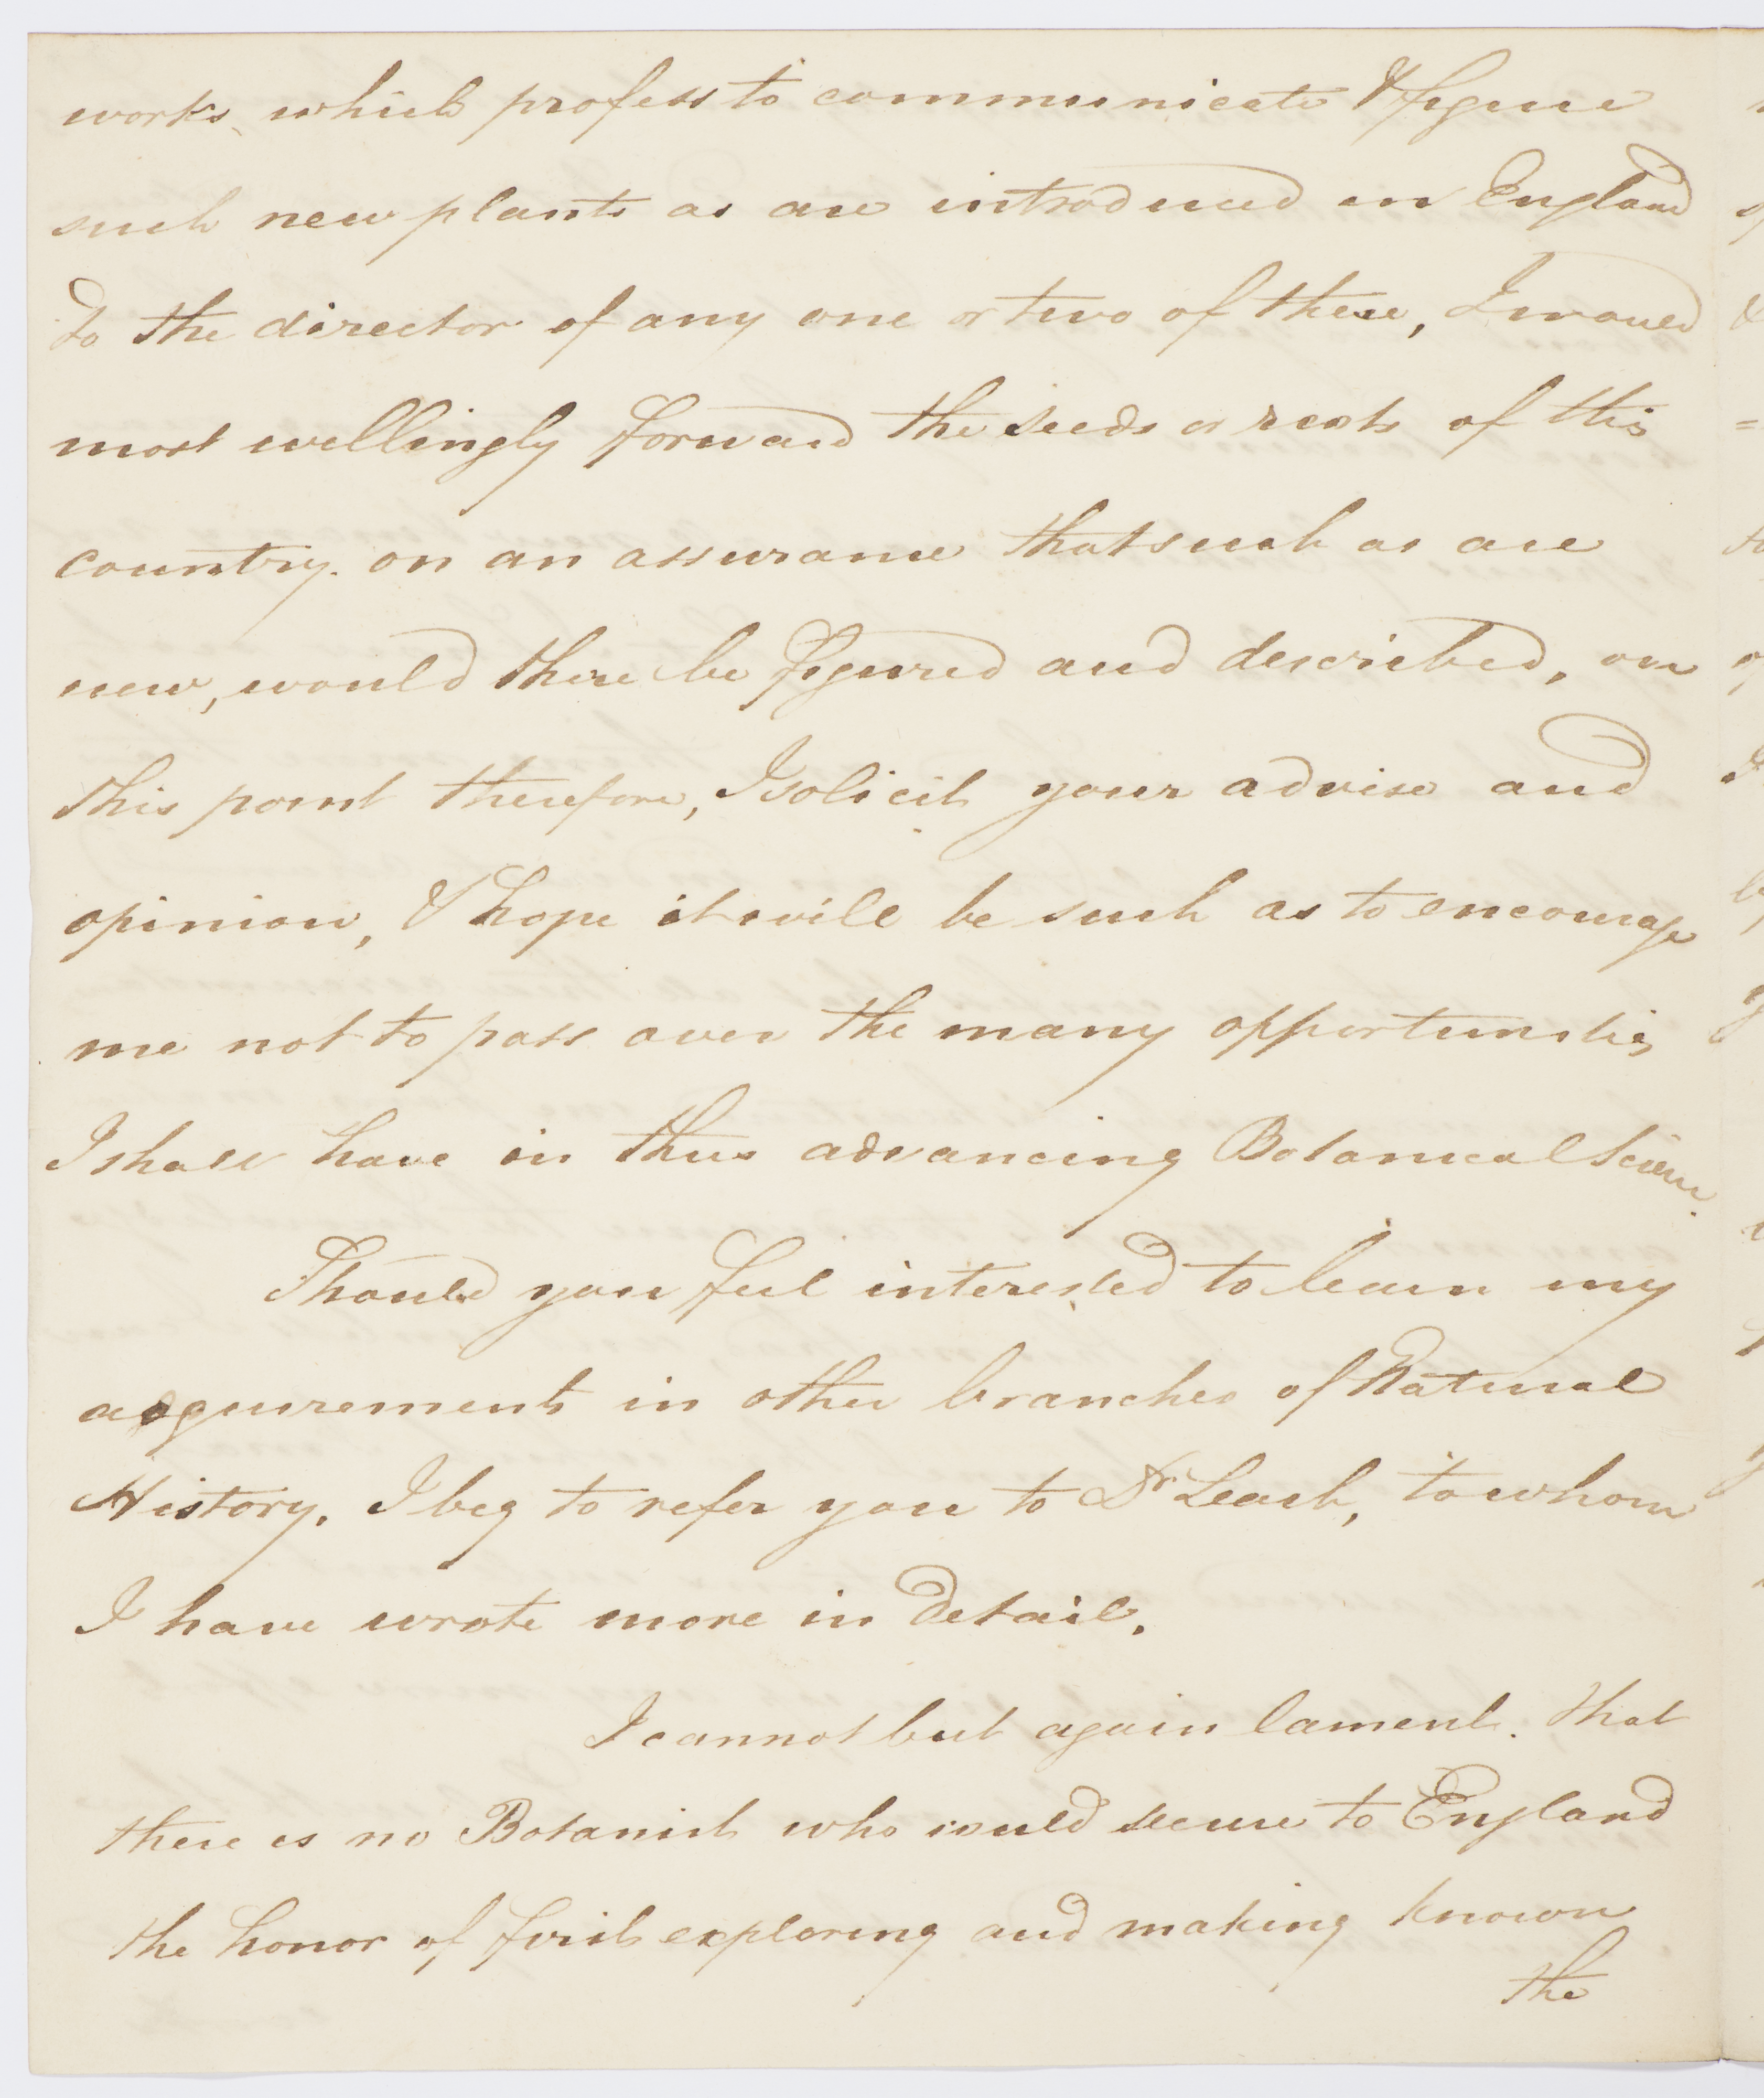 works, which profess to communicate & figure
such new plants as are introduced in England
To the director of any one or two of these, I would
most willingly forward the seeds or roots of this
country. on an assurance that such as are
new, would there be figured and described, on
this point therefore, I solicit your advise and
opinion, & hope it will be such as to encourage
me not to pass over the many opportunities
I shall have in thus advancing Botanical Science.
Should you feel interested to learn my
acquirements in other branches of Natural
History, I beg to refer you to Dr Leach, to whom
I have wrote more in detail.
I cannot but again lament. that
there is no Botanist who would secure to England
the honor of first exploring and making known
the